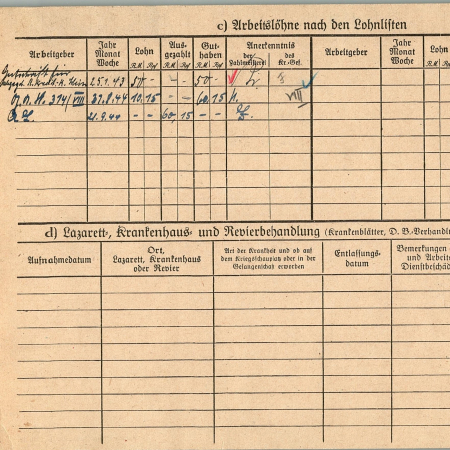 c) Arbeitslöhne nach den Lohnlisten
Arbeitgeber Jahr Monat Woche Lohn R.M. Rpf Ausgezahlt R.M. Rpf Guthaben R.M. Rpf Anerkenntnis der Zahlmeisterei des Kr.-Gef. Arbeitgeber Jahr Monat Woche Lohn R.M. Rpf
Gutschrift für
25.1.43 50 - - - 50 -
31.8.44 10 15 - - 60 15
21.9.44 - - 60 15 - -
d) Lazarett-, Krankenhaus- und Revierbehandlung (Krankenblätter, D. B-Verhandl
Aufnahmedatum Ort, Lazarett, Krankenhaus oder Revier Art der Krankheit und ob auf dem Kriegsschauplatz oder in der Gefangenschaft erworben Entlassungsdatum Bemerkungen und Arbeits Dienstbeschäd